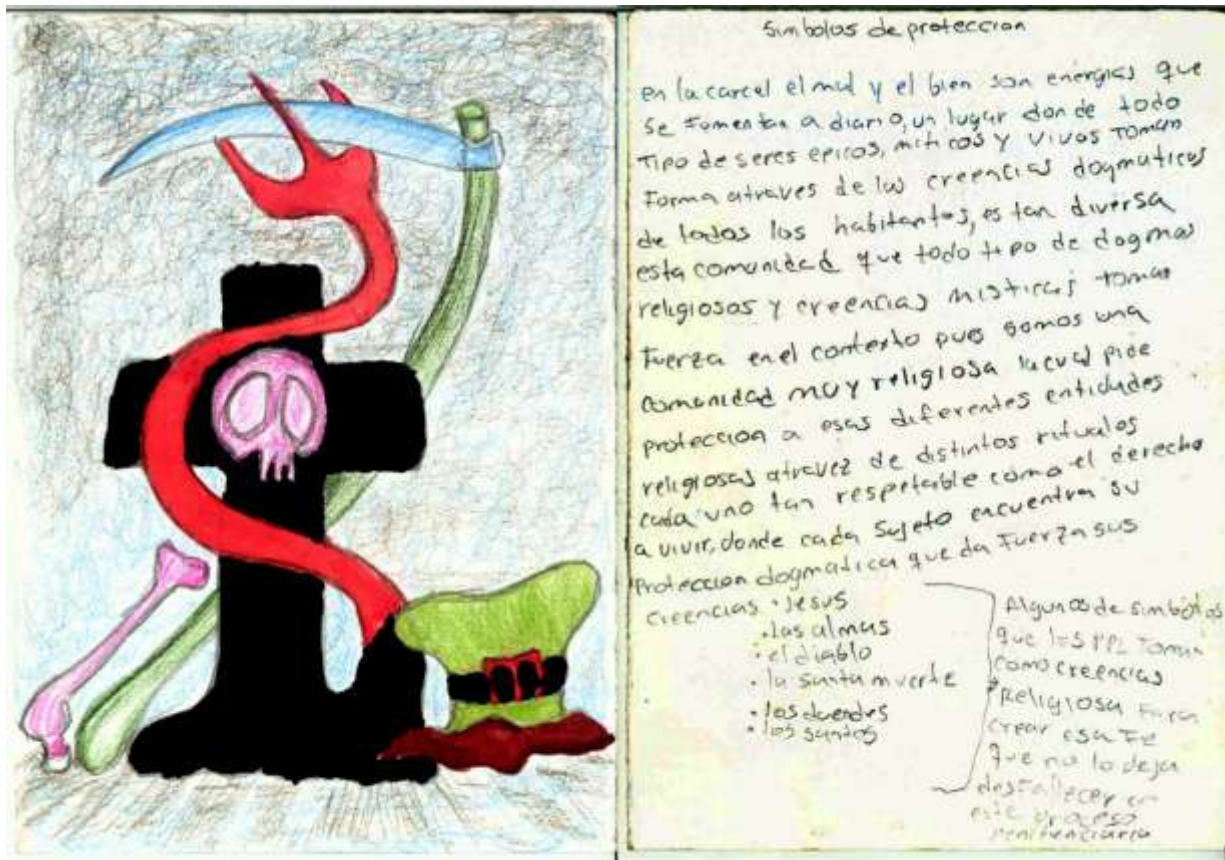 Simbolos de proteccion
en la carcel el mal y el bien son energias que
se fomentan a diario, un lugar donde todo
tipo de seres epicos, miticos y vivos toman
forma atraves de las creencias dogmaticas
de todos los habitantes, es tan diversa
esta comunidad que todo tipo de dogmas
religiosos y creencias misticas toman
fuerza en el contexto pues somos una
comunidad muy religiosa la cual pide
proteccion a esas diferentes entidades
religiosas atravez de distintos rituales
cada uno tan respetable como el derecho
a vivir, donde cada sujeto encuentra su
proteccion dogmatica que da fuerza sus
creencias • Jesus
• las almas
• el diablo
• la santa muerte
• los duendes
• los santos
Algunos de simbolos
que los PPL toman
como creencias
Religiosa para
crear esa fe
que no lo deja
desfallecer en
este proceso
penitenciario